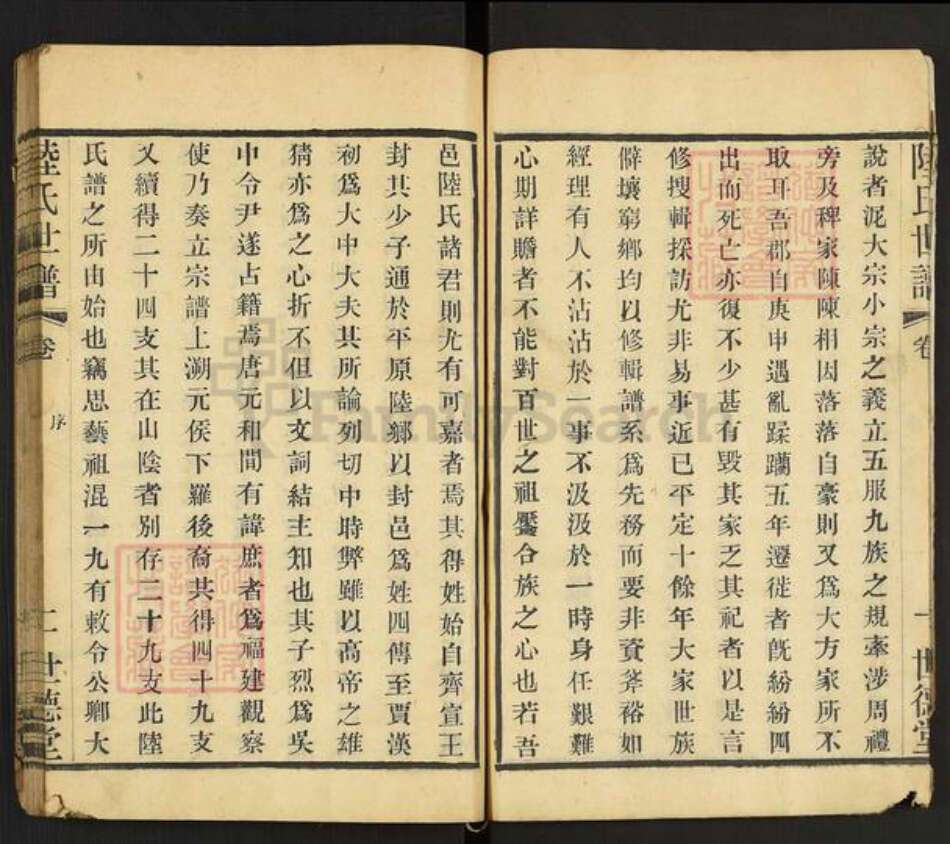 陸氏世譜
卷
一 世德堂
說者泥大宗小宗之義立五服九族之規牽涉周禮
旁及稗家陳陳相因落落自豪則又爲大方家所不
取耳吾郡自庚申遇亂蹂躪五年遷徙者旣紛紛四
出而死亡亦復不少甚有毀其家乏其祀者以是言
修搜輯採訪尤非易事近已平定十餘年大家世族
僻壤窮鄉均以修輯譜系爲先務而要非資斧裕如
經理有人不沾沾於一事不汲汲於一時身任艱難
心期詳贍者不能對百世之祖饜合族之心也若吾
邑陸氏諸君則尤有可嘉者焉其得姓始自齊宣王
封其少子通於平原陸鄉以封邑爲姓四傳至賈漢
初爲大中大夫其所論列切中時弊雖以高帝之雄
猜亦爲之心折不但以文詞結主知也其子烈爲吳
中令尹遂占籍焉唐元和間有諱庶者爲福建觀察
使乃奏立宗譜上溯元侯下羅後裔共得四十九支
又續得二十四支其在山陰者別存三十九支此陸
氏譜之所由始也竊思藝祖混一九有敕令公卿大
陸氏世譜
卷
序
二 世德堂
FamilySearch